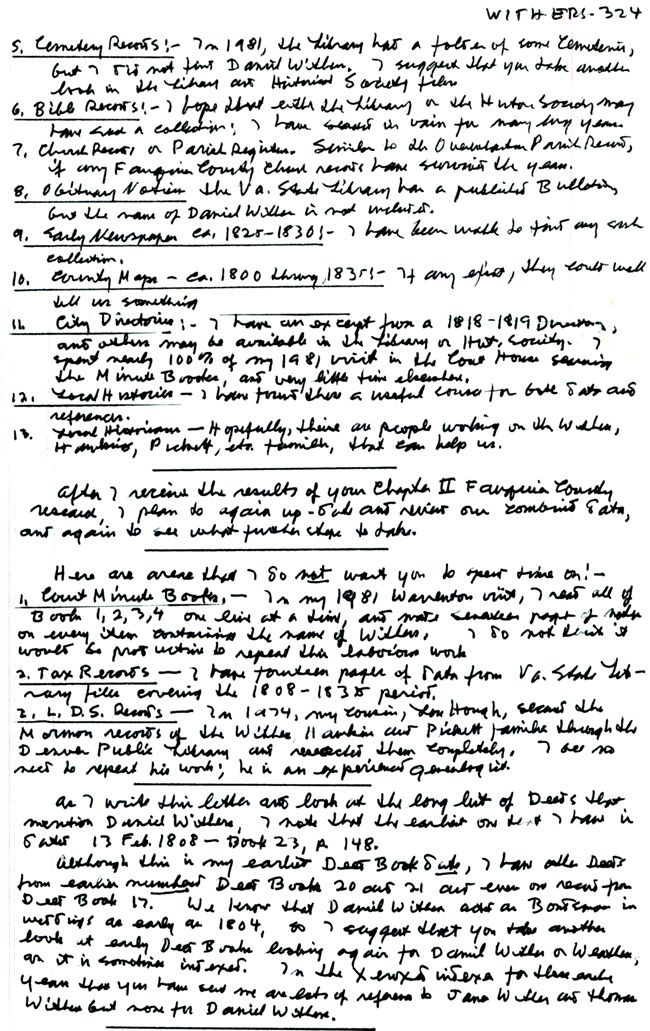 WITHERS-324
5. Cemetery Records:- In 1981, the Library had a folder of some Cemeteries,
but I did not find Daniel Withers. I suggest that you take another
look in the Library and Historical Society files
6. Bible Records:- I hope that either the Library or the Hist. Society may
have such a collection; I have searched in vain for many long years.
7. Church Records or Parish Registers. Similar to the Overwharton Parish Records,
if any Fauquier County Church records have survived the years.
8. Obituary Notices The Va. State Library has a published Bulletin,
but the name of Daniel Withers is not included.
9. Early Newspapers ca. 1825-1830:- I have been unable to find any such
collection.
10. County Maps - ca. 1800 through 1835:- If any exist, they could well
tell us something
11. City Directories:- I have an excerpt from a 1818-1819 Directory,
and others may be available in the Library or Hist. Society. I
spent nearly 100% of my 1981 visit in the Court House searching
the Minute Books, and very little time elsewhere.
12. Local Histories - I have found these a useful source for data and
references.
13. Local Historians - Hopefully, there are people working on the Withers,
Hawkins, Pickett, etc. families, that can help us.
After I receive the results of your Chapter II Fauquier County
research, I plan to again up-date and review our combined data,
and again to see what further steps to take.
Here are areas that I do not want you to spend time on:-
1. Court Minute Books,- In my 1981 Warrenton visit, I read all of
Book 1, 2, 3, 4 one line at a time, and made seventeen pages of notes
on every item containing the name of Withers. I do not think it
would be productive to repeat this laborious work
2. Tax Records - I have fourteen pages of data from Va. State Lib-
rary files covering the 1808-1835 period.
3. L.D.S. Records - In 1974, my cousin, Hough, secured the
Mormon records of the Withers Hawkins and Pickett families through the
Denver Public Library and researched them completely. I see no
need to repeat his work; he is an experienced genealogist.
As I write this letter and look at the long list of Deeds that
mention Daniel Withers, I note that the earliest one that I have is
dated 13 Feb. 1808 - Book 23, p. 148.
Although this is my earliest Deed Book date, I have other Deeds
from earlier numbered Deed Books 20 and 21 and even one record from
Deed Book 17. We know that Daniel Withers acted as Bondsman in
weddings as early as 1804, so I suggest that you take another
look at early Deed Books looking again for Daniel Withers or Weathers,
as it is sometimes indexed. In the Xeroxed indexes for these early
years that you have sent me are lots of references to James Withers and Thomas
Withers but none for Daniel Withers.